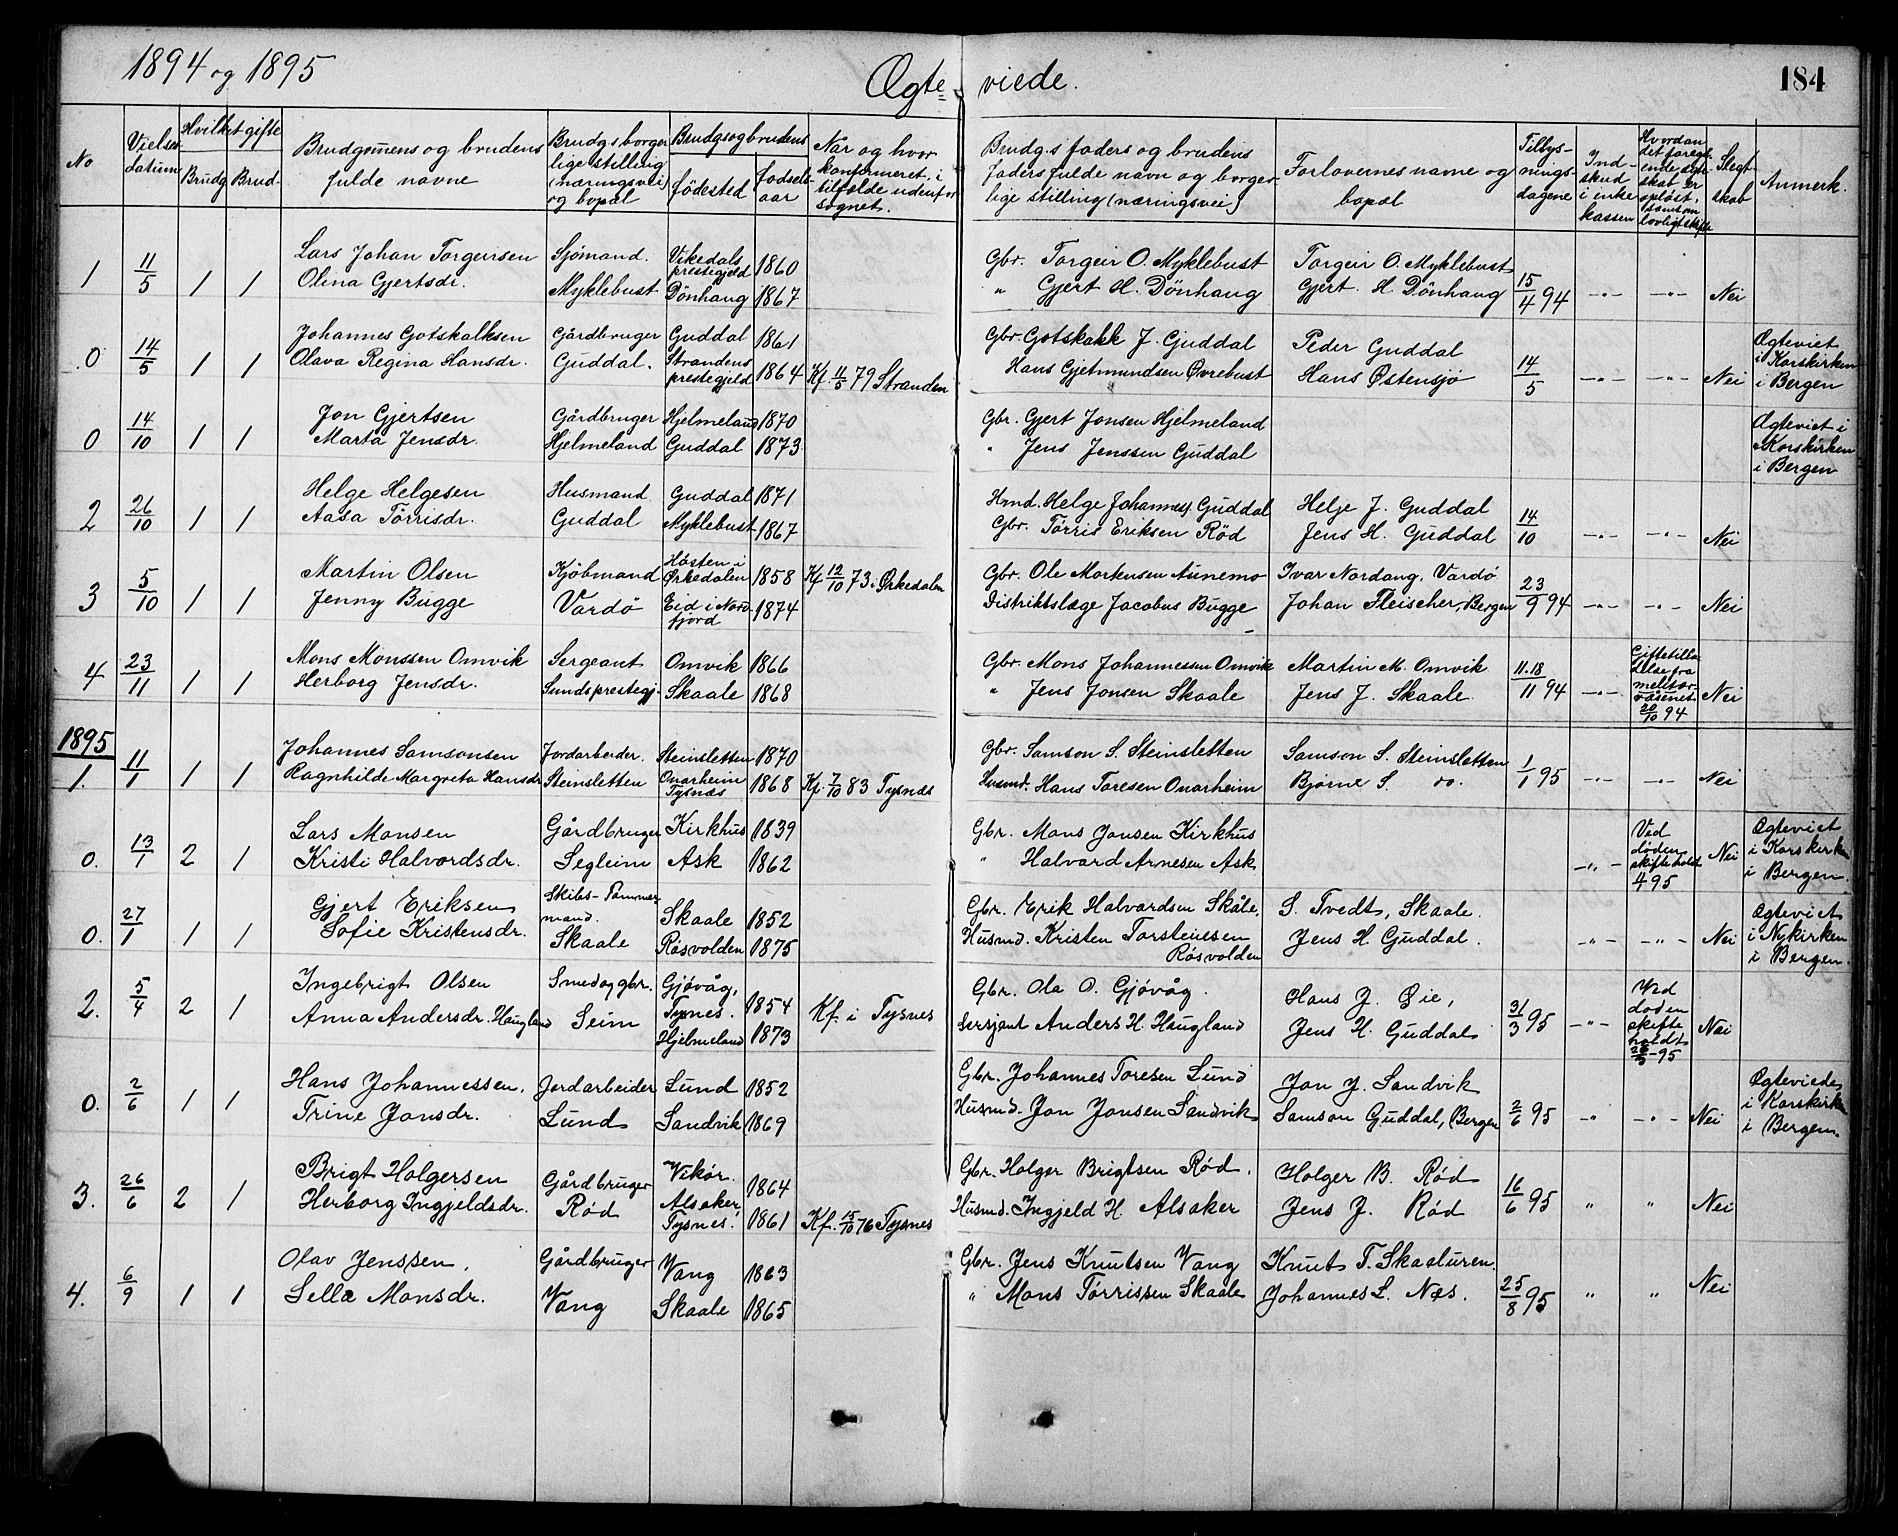 1894 og 1895
Ægte=
viede.
184
No
Vielses-
datum
Hvilket gifte
Brudg.
Brud.
Brudgommens og brudens
fulde navne
Brudg.s borger-
lige stilling
(næringsvei)
og bopæl
Brudgs og brudens
fødested
fødsels-
aar
Når og hvor
konfirmeret, i
tilfælde udenfor
sognet.
Brudg.s faders og brudens
faders fulde navn og borger-
lige stilling (næringsvei)
Forlovernes navne og
bopæl
Tillys-
nings-
dagene
Ind-
skud
i enke
kassen
Hvordan
det foregå-
ende ægte-
skab er
opløst,
lovligt skifte
Slegt-
skab
Anmerk.
1 11/5 1 1 Lars Johan Torgeirsen Sjømand. Vikedals prestegjeld 1860 Gbr. Torgeir O. Myklebust Torgeir O. Myklebust
Olina Gjertsdr. Myklebust Dönhaug 1867 " Gjert H. Dönhaug Gjert H. Dönhaug 15/4 94 -"- -"- Nei
0 14/5 1 1 Johannes Gotskalksen Gårdbruger Guddal 1861 Gbr. Gotskalk J. Guddal Peder Guddal Ægteviet
Olava Regina Hansdr. Guddal. Strandens prestegjeld 1864 Kf. 11/5 79 Stranden Hans Gjetmundsen Øvrebust Hans Østensjø 14/5 -"- -"- Nei i Korskirken i Bergen
0 14/10 1 1 Jon Gjertsen Gårdbruger Hjelmeland 1870 Gbr. Gjert Jonsen Hjelmeland Ægteviet i
Marta Jensdr. Hjelmeland Guddal 1873 " Jens Jenssen Guddal Korskirken i Bergen
2 26/10 1 1 Helge Helgesen Husmand Guddal 1871 Hmd. Helge Johanness. Guddal Helje J. Guddal
Aasa Törrisdr. Guddal Myklebust 1867 Gbr. Törris Eriksen Röd Jens H. Guddal 14/10 -"- -"- Nei
3 5/10 1 1 Martin Olsen Kjöbmand Hosten i Ørkedalen 1858 Kf 12/10 73 i Ørkedalen Gbr. Ole Mortensen Aunemo Ivar Nordang, Vardö
Jenny Bugge Vardö Eid i Nordfjord 1874 Distriktslæge Jacobus Bugge Johan Fleischer, Bergen 23/9 94 -"- -"- Nei
4 23/11 1 1 Mons Monssen Omvik Sergeant Omvik 1866 Gbr. Mons Johannessen Omvik Martin M. Omvik 11.18/11 94 -"- Giftetilladelse fra
Herborg Jensdr. Sunds prestegj. Skaale 1868 " Jens Jonsen Skaale Jens J. Skaale 20/10 94 Nei
1895
1. 11/1 1 1 Johannes Samsonsen Jordarbeider. Steinsletten 1870 Gbr. Samson S. Steinsletten Samson S. Steinsletten
Ragnhilde Margreta Hansdr. Steinsletten Onarheim Tysnæs 1868 Kf. 7/10 83 Tysnæs Husmd. Hans Toresen Onarheim Bjørne S. do. 1/1 95 -"- -"- Nei
0. 13/1 2 1 Lars Monsen Gårdbruger Kirkhus 1839 Gbr. Mons Jonsen Kirkhus Ved döden Ægteviet
Kristi Halvordsdr. Segleim Ask 1862 " Halvard Arnesen Ask -"- skifte holdt 4 95 Nei i Korskirken i Bergen.
0. 27/1 1 1 Gjert Eriksen Skibs-Tømmermand. Skaale 1852 Gbr. Erik Halvardsen Skåle, S. Tvedt, Skaale. Ægteviet
Sofie Kristensdr. Skaale Røsvolden 1875 Husmd. Kristen Torsteinsen Røsvolden Jens H. Guddal. -"- -"- Nei i Nykirken i Bergen.
2. 5/4 2 1 Ingebrigt Olsen Smed og gbr. Gjövåg, Tysnes. 1854 Kf. i Tysnes Gbr. Ola O. Gjövåg. Hans J. Øie, Ved döden
Anna Andersdr. Haugland Seim Hjelmeland 1873 Sersjant Anders H. Haugland Jens H. Guddal 31/3 95 -"- skifte holdt 95 Nei
0. 2/6 1 1 Hans Johannessen, Jordarbeider Lund 1852 Gbr. Johannes Toresen Lund Jon J. Sandvik Ægteviede
Trine Jonsdr. Lund Sandvik 1869 Husmd. Jon Jonsen Sandvik Samson Guddal, Bergen 2/6 95 -"- -"- Nei i Korskirk i Bergen.
3. 26/6 2 1 Brigt Holgersen Gårdbruger Vikör. 1864 Gbr. Holger Brigtsen Röd. Holger B. Röd
Herborg Ingjeldsdr. Röd Alsaker, Tysnes. 1861 Kf. 15/10 76 Tysnes Husmd. Ingjeld H. Alsaker Jens J. Röd 16/6 95 " " Nei
4. 6/9 1 1 Olav Jenssen, Gårdbruger Vang 1863 Gbr. Jens Knutsen Vang Knut T. Skaaluren.
Sella Monsdr. Vang Skaale 1865 " Mons Törrissen Skaale Johannes L. Næs. 25/8 95 " " Nei